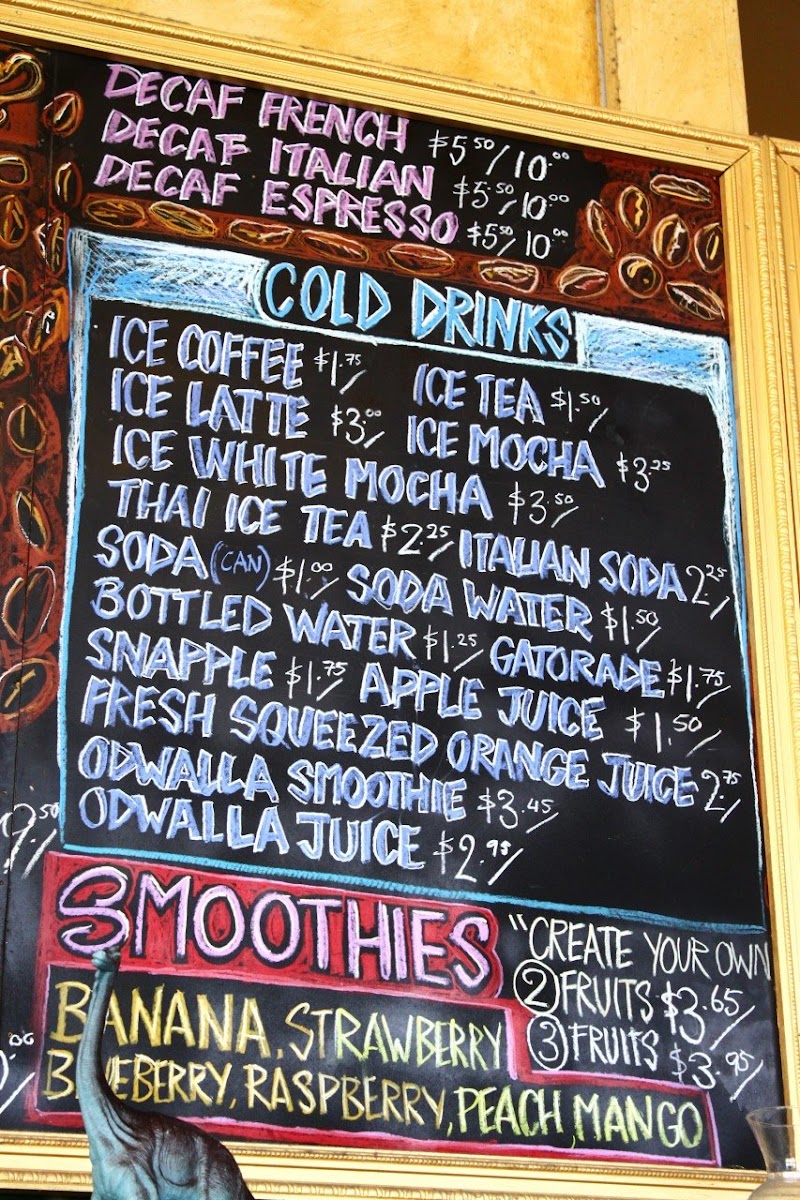 DECAF FRENCH $5.50/10.00
DECAF ITALIAN $5.50/10.00
DECAF ESPRESSO $5.50/10.00
COLD DRINKS
ICE COFFEE $1.75/ ICE TEA $1.50/
ICE LATTE $3.00/ ICE MOCHA $3.25
ICE WHITE MOCHA $3.50/
THAI ICE TEA $2.25/ ITALIAN SODA 2.25/
SODA (CAN) $1.00/ SODA WATER $1.50/
BOTTLED WATER $1.25/ GATORADE $1.75/
SNAPPLE $1.75/ APPLE JUICE $1.50/
FRESH SQUEEZED ORANGE JUICE 2.75/
ODWALLA SMOOTHIE $3.45/
ODWALLA JUICE $2.95/
9.50/
SMOOTHIES "CREATE YOUR OWN
2 FRUITS $3.65/
3 FRUITS $3.95/
BANANA, STRAWBERRY
BLUEBERRY, RASPBERRY, PEACH, MANGO